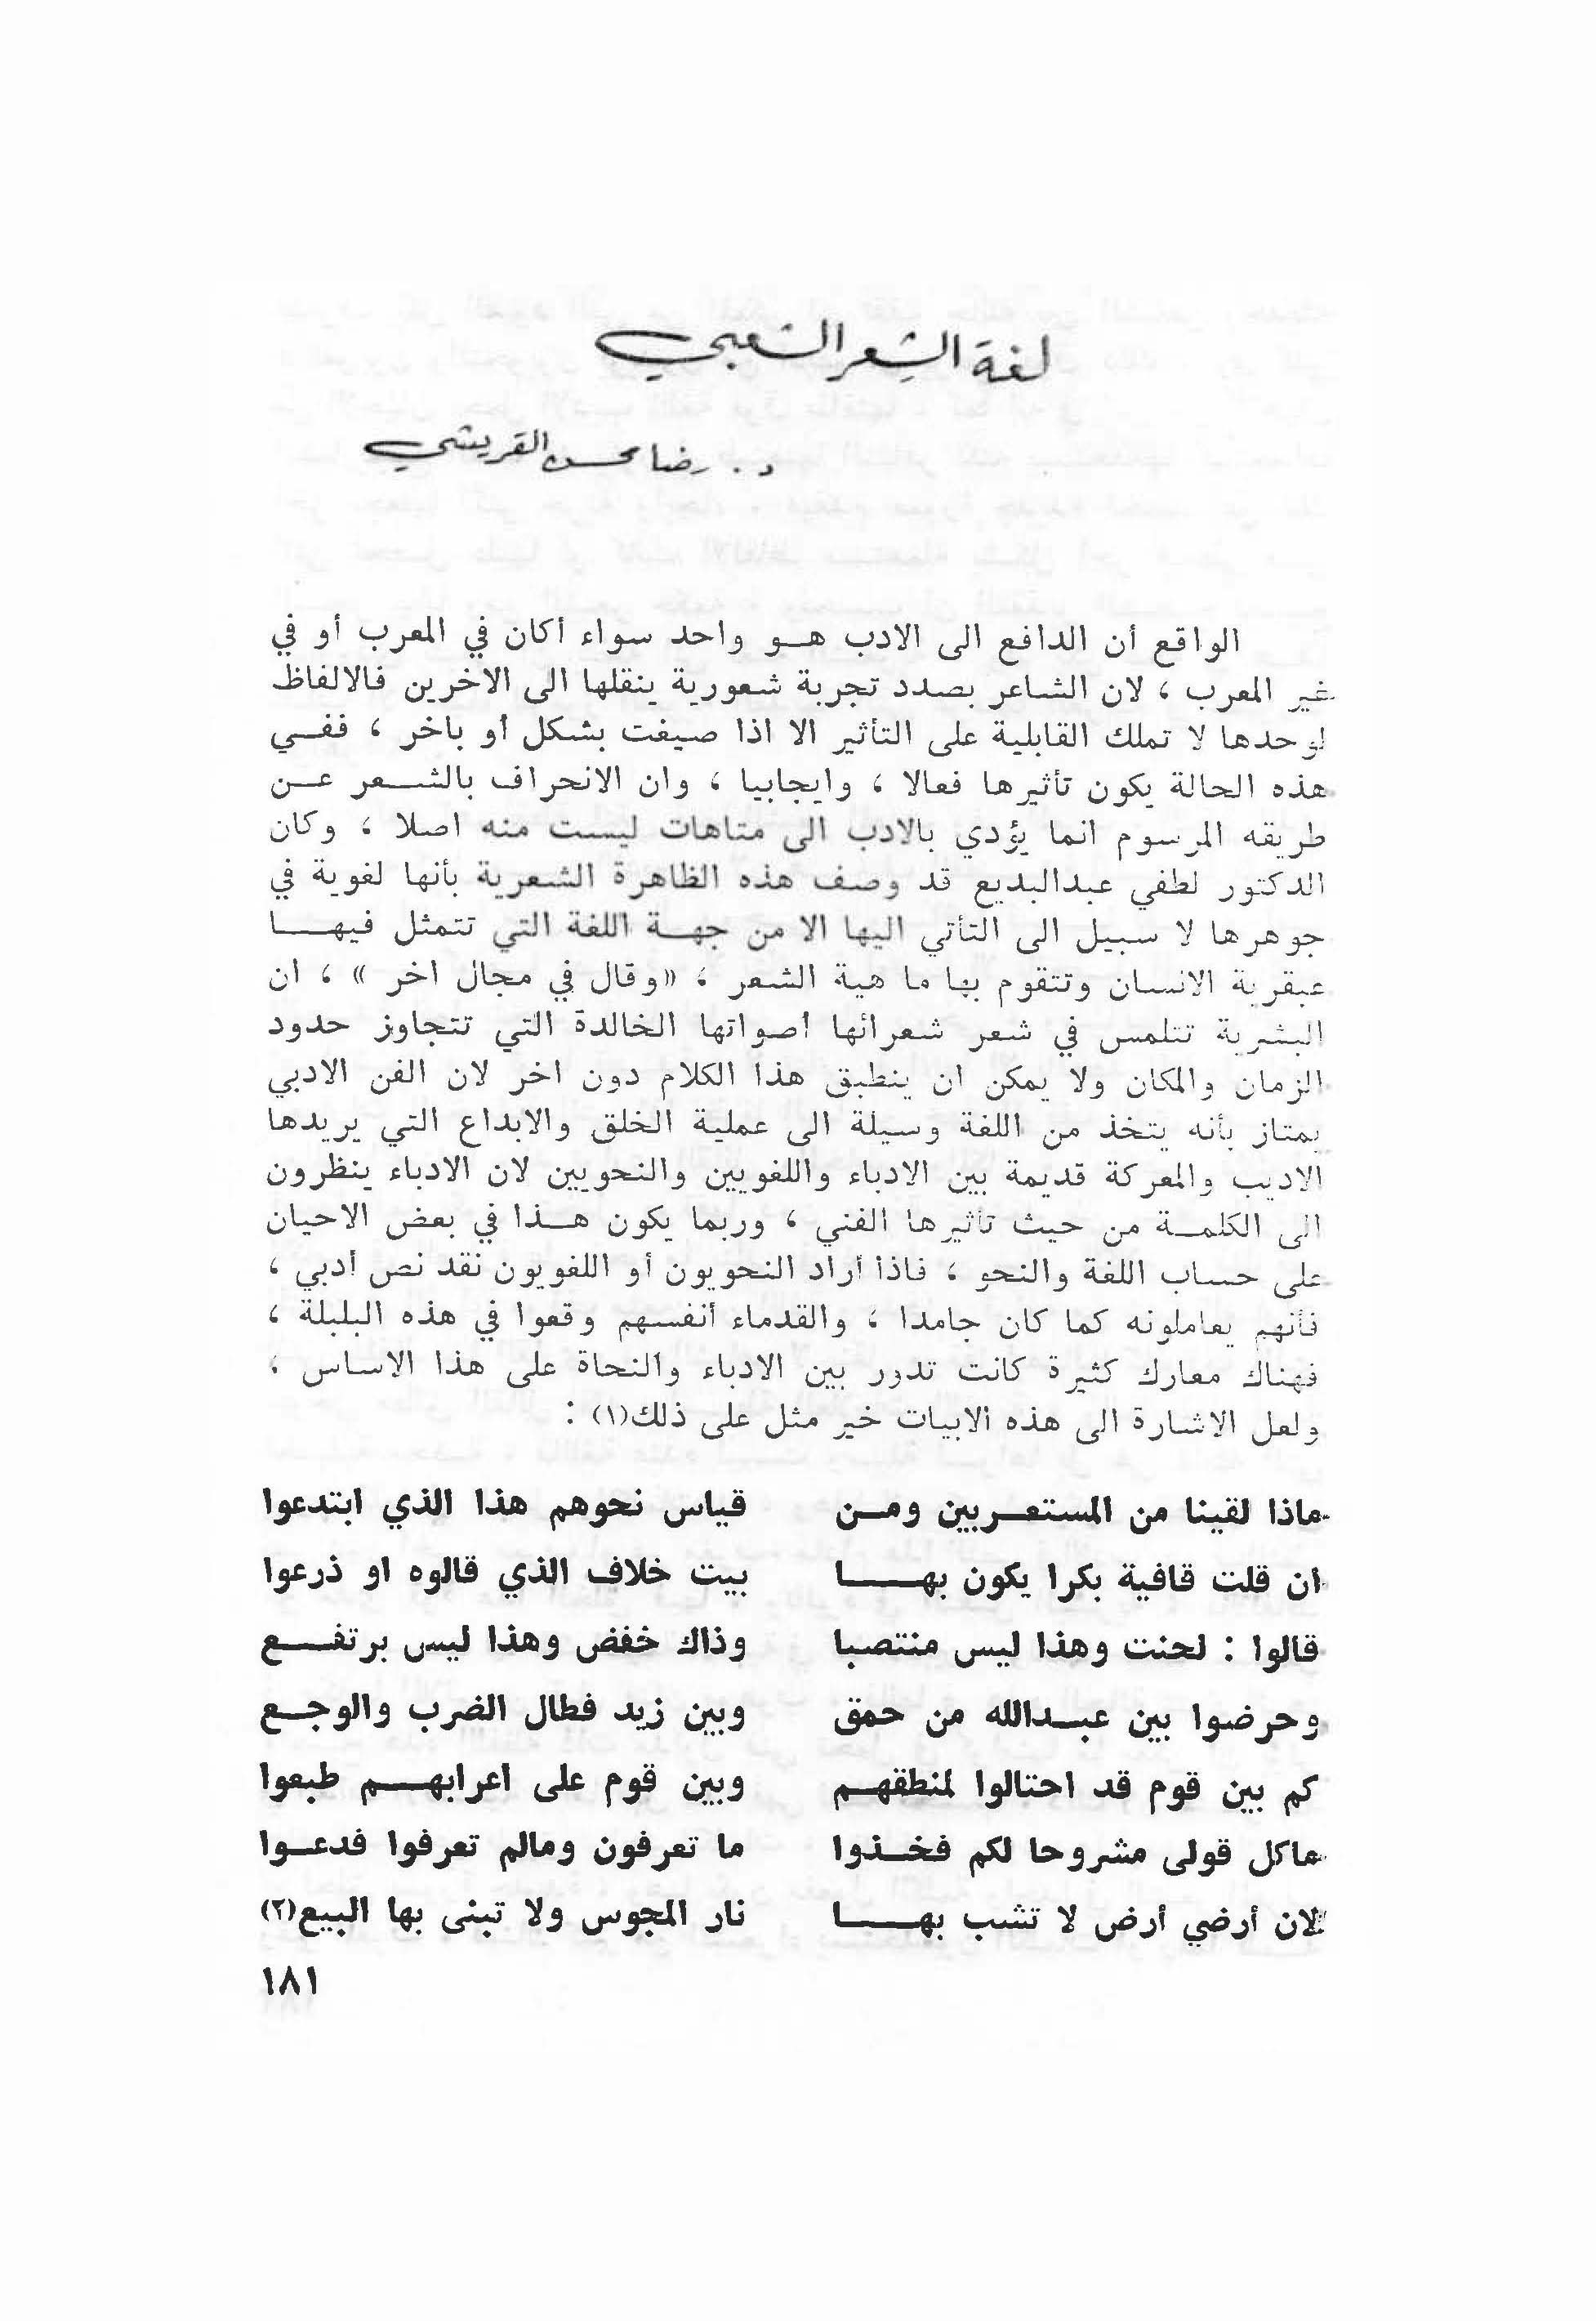 لغة الشعر الشعبي
د. رضا محسن القريشي
الواقع أن الدافع الى الادب هو واحد سواء أكان في المعرب أو في
غير المعرب ، لان الشاعر بصدد تجربة شعورية ينقلها الى الاخرين فالالفاظ
لوحدها لا تملك القابلية على التأثير الا اذا صيغت بشكل أو باخر ، ففي
هذه الحالة يكون تأثيرها فعالا ، وايجابيا ، وان الانحراف بالشعر عن
طريقه المرسوم انما يؤدي بالادب الى متاهات ليست منه اصلا ، وكان
الدكتور لطفي عبدالبديع قد وصف هذه الظاهرة الشعرية بأنها لغوية في
جوهرها لا سبيل الى التأتي اليها الا من جهة اللغة التي تتمثل فيها
عبقرية الانسان وتتقوم بها ما هية الشعر ، «وقال في مجال اخر » ، ان
البشرية تتلمس في شعر شعرائها أصواتها الخالدة التي تتجاوز حدود
الزمان والمكان ولا يمكن ان ينطبق هذا الكلام دون اخر لان الفن الادبي
يمتاز بأنه يتخذ من اللغة وسيلة الى عملية الخلق والابداع التي يريدها
الاديب والمعركة قديمة بين الادباء واللغويين والنحويين لان الادباء ينظرون
الى الكلمة من حيث تأثيرها الفني ، وربما يكون هذا في بعض الاحيان
على حساب اللغة والنحو ، فاذا أراد النحويون أو اللغويون نقد نص أدبي ،
فأنهم يعاملونه كما كان جامدا ، والقدماء أنفسهم وقعوا في هذه البلبلة ،
فهناك معارك كثيرة كانت تدور بين الادباء والنحاة على هذا الاساس ،
ولعل الاشارة الى هذه الابيات خير مثل على ذلك(١) :
ماذا لقينا من المستعربين ومن قياس نحوهم هذا الذي ابتدعوا
ان قلت قافية بكرا يكون بها بيت خلاف الذي قالوه او ذرعوا
قالوا : لحنت وهذا ليس منتصبا وذاك خفض وهذا ليس برتفع
وحرضوا بين عبدالله من حمق وبين زيد فطال الضرب والوجع
كم بين قوم قد احتالوا لمنطقهم وبين قوم على اعرابهم طبعوا
ماكل قولى مشروحا لكم فخذوا ما تعرفون ومالم تعرفوا فدعوا
لان أرضي أرض لا تشب بها نار المجوس ولا تبنى بها البيع(٢)
١٨١